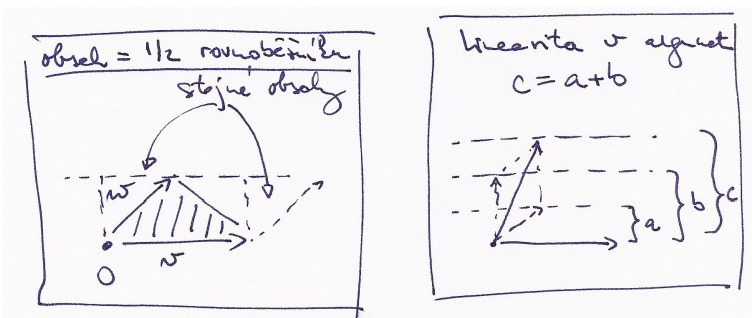 obsah = 1/2 rovnoběžníku
stejné obsahy
w
v
O
Linearita v argument
c = a+b
a
b
c